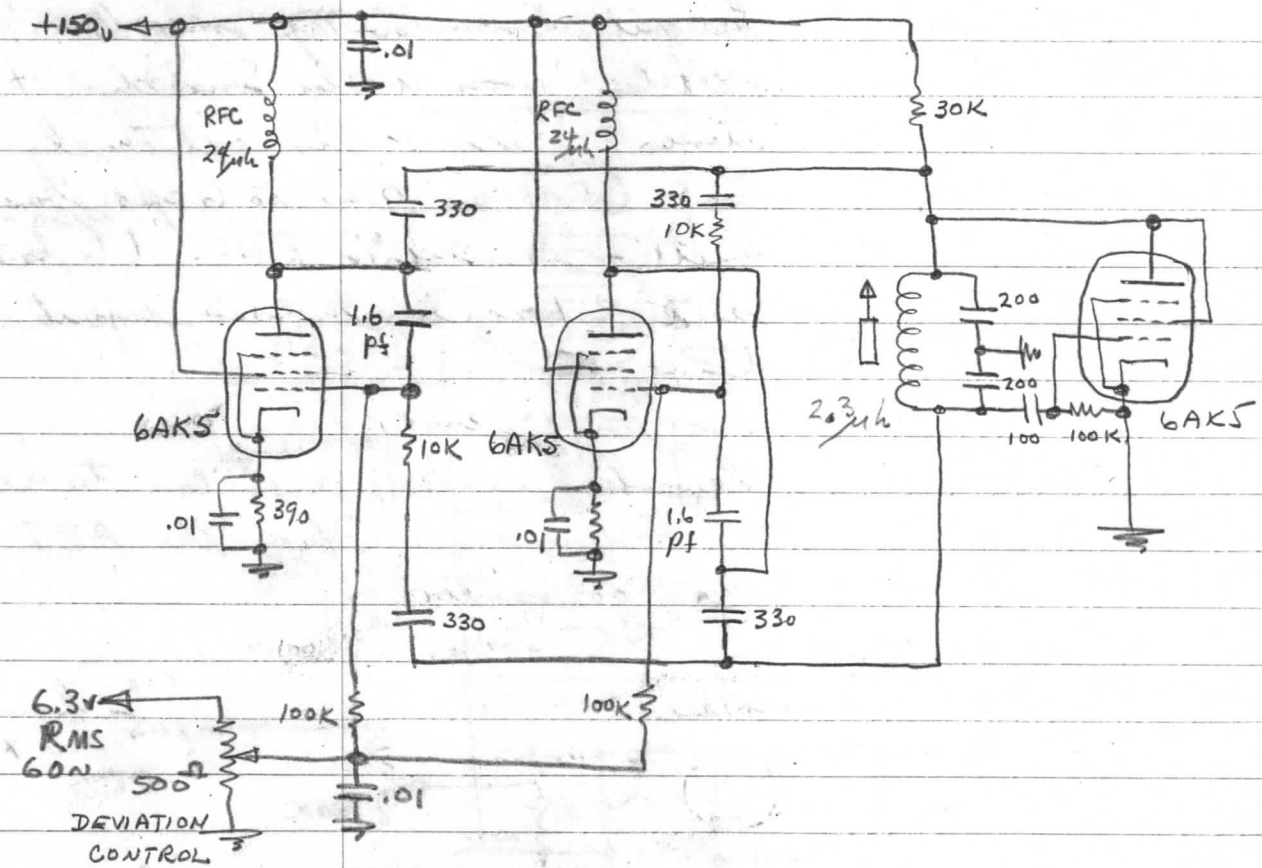 +150v
.01
RFC
24µh
RFC
24µh
30K
330
330
10K
1.6
pf
200
200
2.3µh
100
100K
6AK5
6AK5
10K
6AK5
.01
390
.01
1.6
pf
330
330
6.3v
RMS
60~
500Ω
100K
100K
.01
DEVIATION
CONTROL